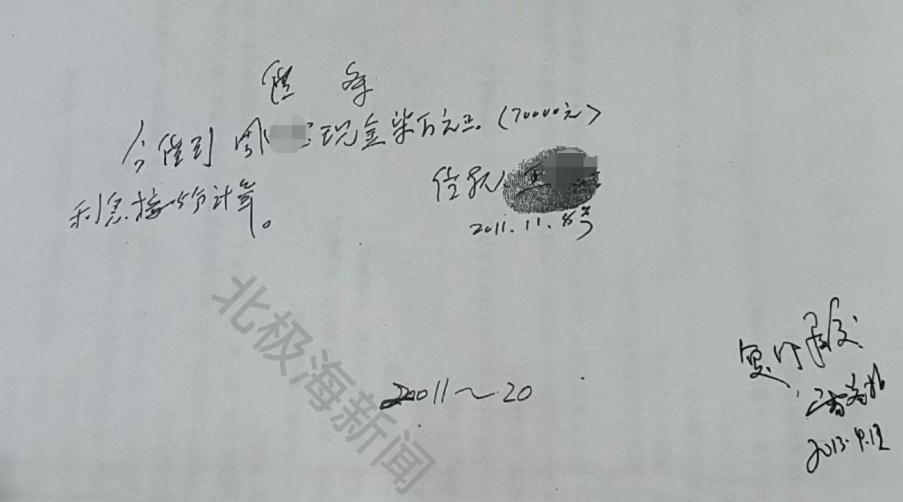 借 条
今借到 周 现金柒万元正。(70000元)
利息按 分计算。
借款人 王
2011.11.8号
北极海新闻
2011~20
复印
2013.9.12